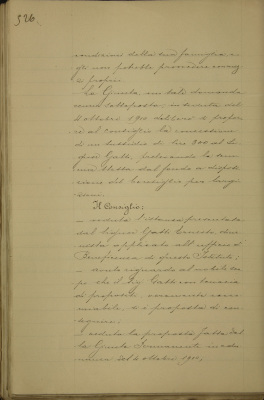 326.
condizioni della sua famiglia e
gli non potrebbe provvedere con mez
zi propri.
La Giunta, cui tale domanda
venne sottoposta, in seduta del
4 ottobre 1910 deliberò di propor
re al Consiglio la concessione
di un sussidio di lire 200 al Si
gnor Gatti, prelevando la som
ma stessa dal fondo a disposi
zione del Consiglio per
Il Consiglio;
– veduta l'istanza presentata
dal Signor Gatti Ernesto
applicato all'ufficio di
Beneficenza di questo Istituto;
– avuto riguardo al
che il Sig. Gatti
di proposito, veramente com
mendevole, e a proposta di
– veduta la proposta fatta dal
la Giunta Permanente in adu
nanza del 4 ottobre 1910,